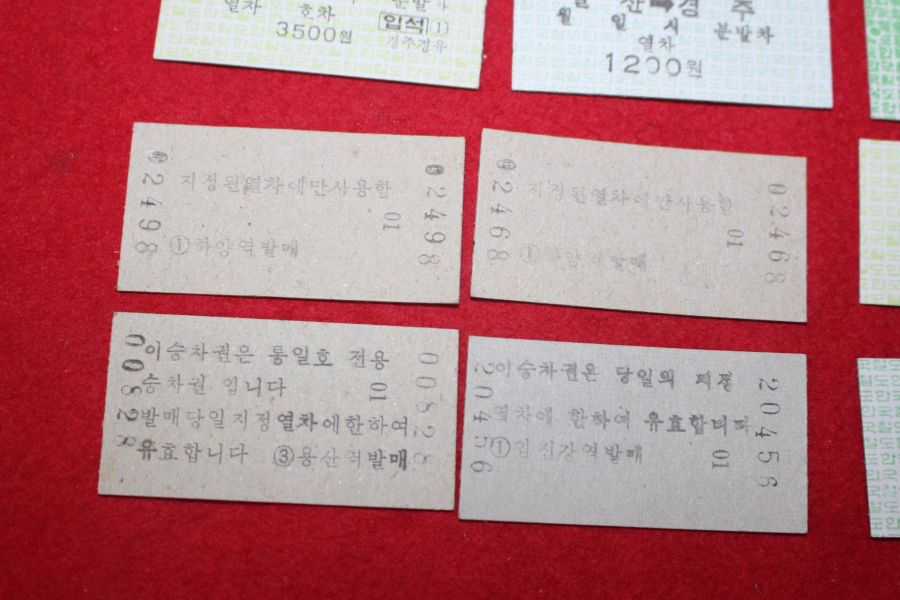 분발차
열차 호차
입석 (1)
3500원
경주경유
산 경 주
월 일 시 분발차
열차
1200원
02498
지정된열차에만사용함
01
①하양역발매
02498
02468
지정된열차에만사용함
01
①하양역발매
02468
00828
이승차권은 통일호 전용
승차권 입니다
01
발매당일지정열차에한하여
유효합니다 ③용산역발매
00828
이승차권은 당일의 지정
열차에 한하여 유효합니다
①임진강역발매
01
20458